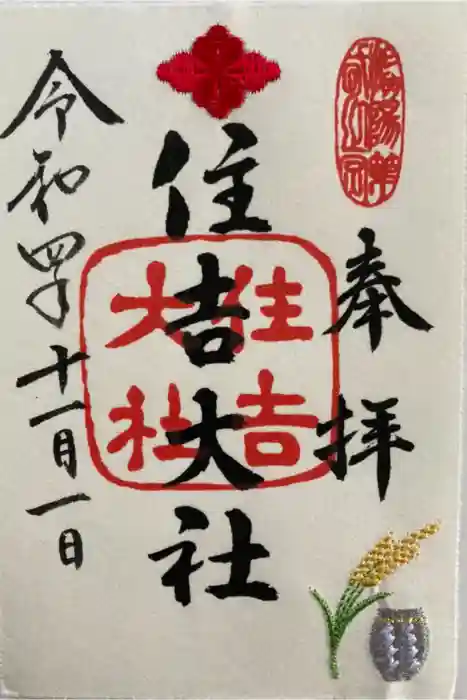 奉拝
住吉大社
住吉大社
令和四年十一月一日